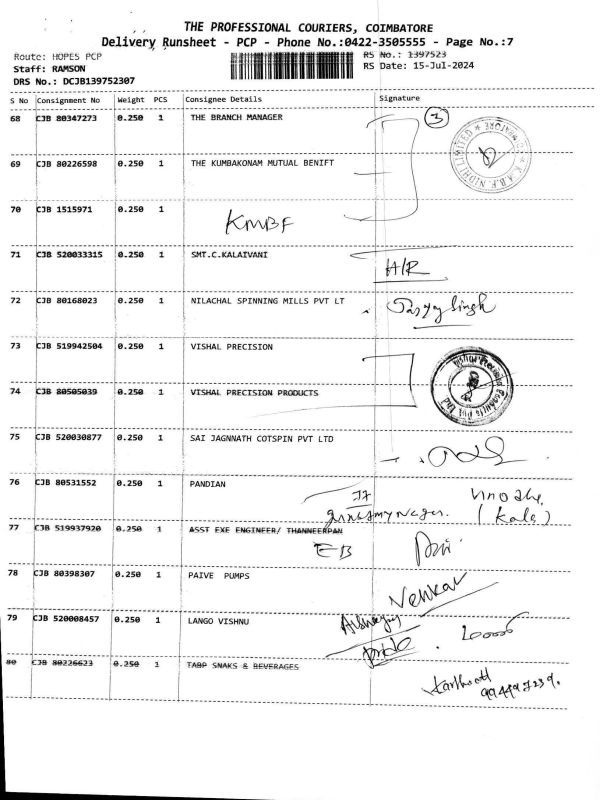 THE PROFESSIONAL COURIERS, COIMBATORE
Delivery Runsheet - PCP - Phone No.:0422-3505555 - Page No.:7
Route: HOPES PCP
RS No.: 1397523
Staff: RAMSON
RS Date: 15-Jul-2024
DRS No.: DCJB139752307
S No Consignment No Weight PCS Consignee Details Signature
68 CJB 80347273 0.250 1 THE BRANCH MANAGER 3
69 CJB 80226598 0.250 1 THE KUMBAKONAM MUTUAL BENIFT
70 CJB 1515971 0.250 1
KMBF
71 CJB 520033315 0.250 1 SMT.C.KALAIVANI
H/R
72 CJB 80168023 0.250 1 NILACHAL SPINNING MILLS PVT LT
Singh
73 CJB 519942504 0.250 1 VISHAL PRECISION
Vishal Precision Products Pvt Ltd
74 CJB 80505039 0.250 1 VISHAL PRECISION PRODUCTS
75 CJB 520030877 0.250 1 SAI JAGNNATH COTSPIN PVT LTD
76 CJB 80531552 0.250 1 PANDIAN
(Kala)
77 CJB 519937920 0.250 1 ASST EXE ENGINEER/ THANNEERPAN
EB
78 CJB 80398307 0.250 1 PAIVE PUMPS
79 CJB 520008457 0.250 1 LANGO VISHNU
80 CJB 80226623 0.250 1 TABP SNAKS & BEVERAGES